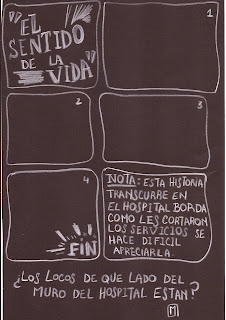 "EL
SENTIDO
DE LA
VIDA"
1
2
3
4
FIN
NOTA: ESTA HISTORIA
TRANSCURRE EN
EL HOSPITAL BORDA
COMO LES CORTARON
LOS SERVICIOS SE
HACE DIFICIL
APRECIARLA.
¿LOS LOCOS DE QUE LADO DEL
MURO DEL HOSPITAL ESTAN?
M